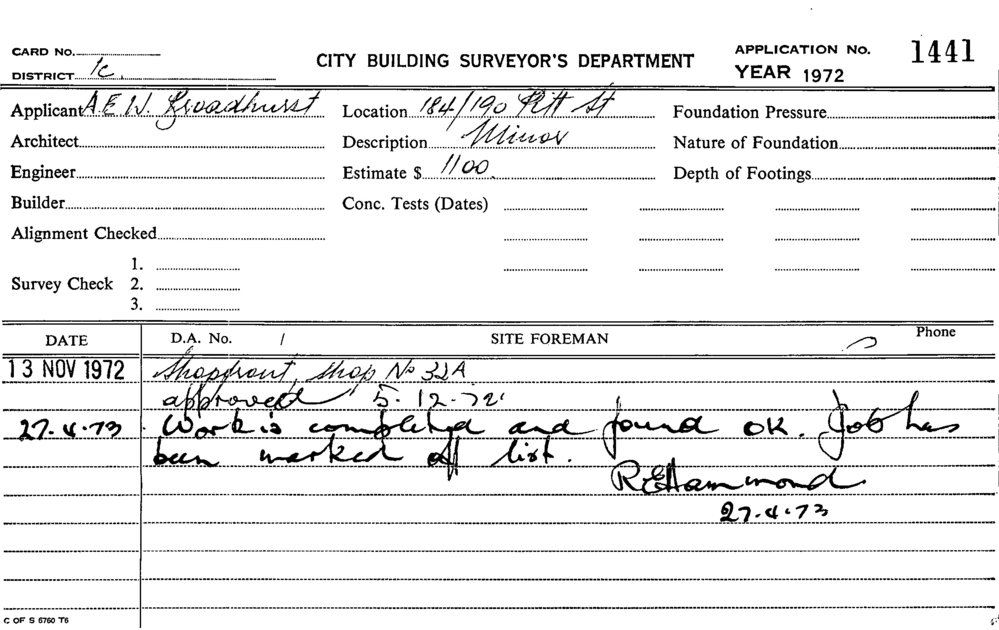 CARD No.
DISTRICT 1c.
CITY BUILDING SURVEYOR'S DEPARTMENT
APPLICATION No. 1441
YEAR 1972
Applicant A.E.W. Broadhurst
Location 184/190 Pitt St
Foundation Pressure
Architect
Description Minor
Nature of Foundation
Engineer
Estimate $ 1100.
Depth of Footings
Builder
Conc. Tests (Dates)
Alignment Checked
Survey Check 1.
2.
3.
DATE D.A. No. / SITE FOREMAN Phone
13 NOV 1972 Shopfront, Shop No 32A
approved 5.12.72
27.4.73 Work is completed and found OK. Job has
been marked off list.
R.E.Hammond.
27.4.73
C OF S 6760 T6